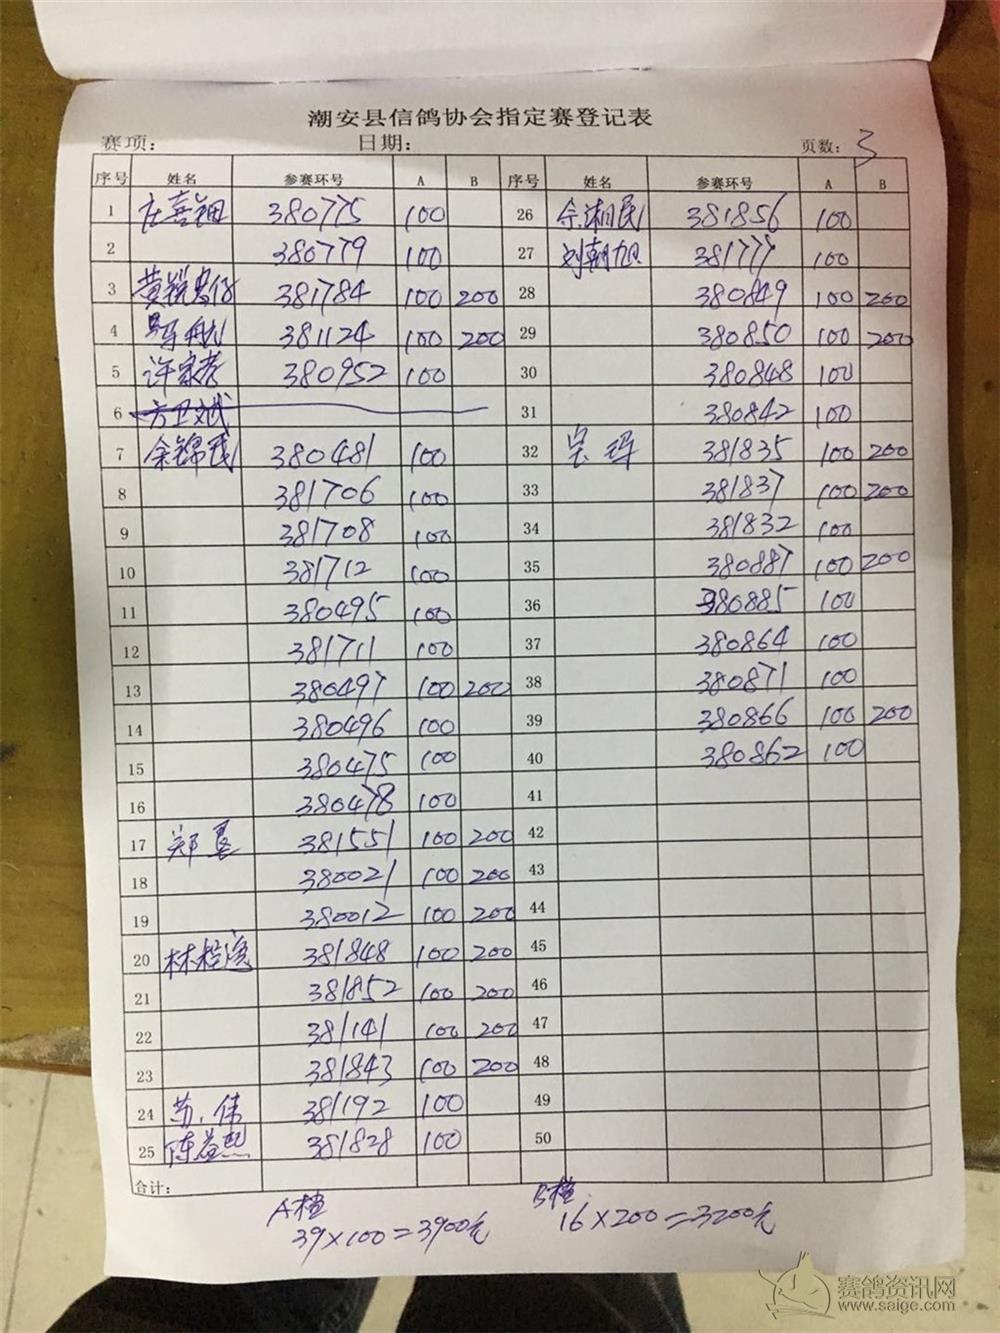 潮安县信鸽协会指定赛登记表
赛项: 日期: 页数: 3
序号 姓名 参赛环号 A B 序号 姓名 参赛环号 A B
1 庄喜钿 380775 100 26 余湘民 381856 100
2 380779 100 27 刘朝旭 381777 100
3 381784 100 200 28 380849 100 200
4 381124 100 200 29 380850 100 200
5 许家 380952 100 30 380848 100
6 方卫斌 31 380842 100
7 余锦茂 380481 100 32 381835 100 200
8 381706 100 33 381837 100 200
9 381708 100 34 381832 100
10 381712 100 35 380887 100 200
11 380495 100 36 380885 100
12 381711 100 37 380864 100
13 380497 100 200 38 380871 100
14 380496 100 39 380866 100 200
15 380475 100 40 380862 100
16 380478 100 41
17 郑 381551 100 200 42
18 380021 100 200 43
19 380012 100 200 44
20 林 381848 100 200 45
21 381852 100 200 46
22 381141 100 200 47
23 381843 100 200 48
24 苏伟 381192 100 49
25 陈益熙 381828 100 50
合计:
A檔 B檔
39×100=3900元 16×200=3200元
赛鸽资讯网
www.saige.com